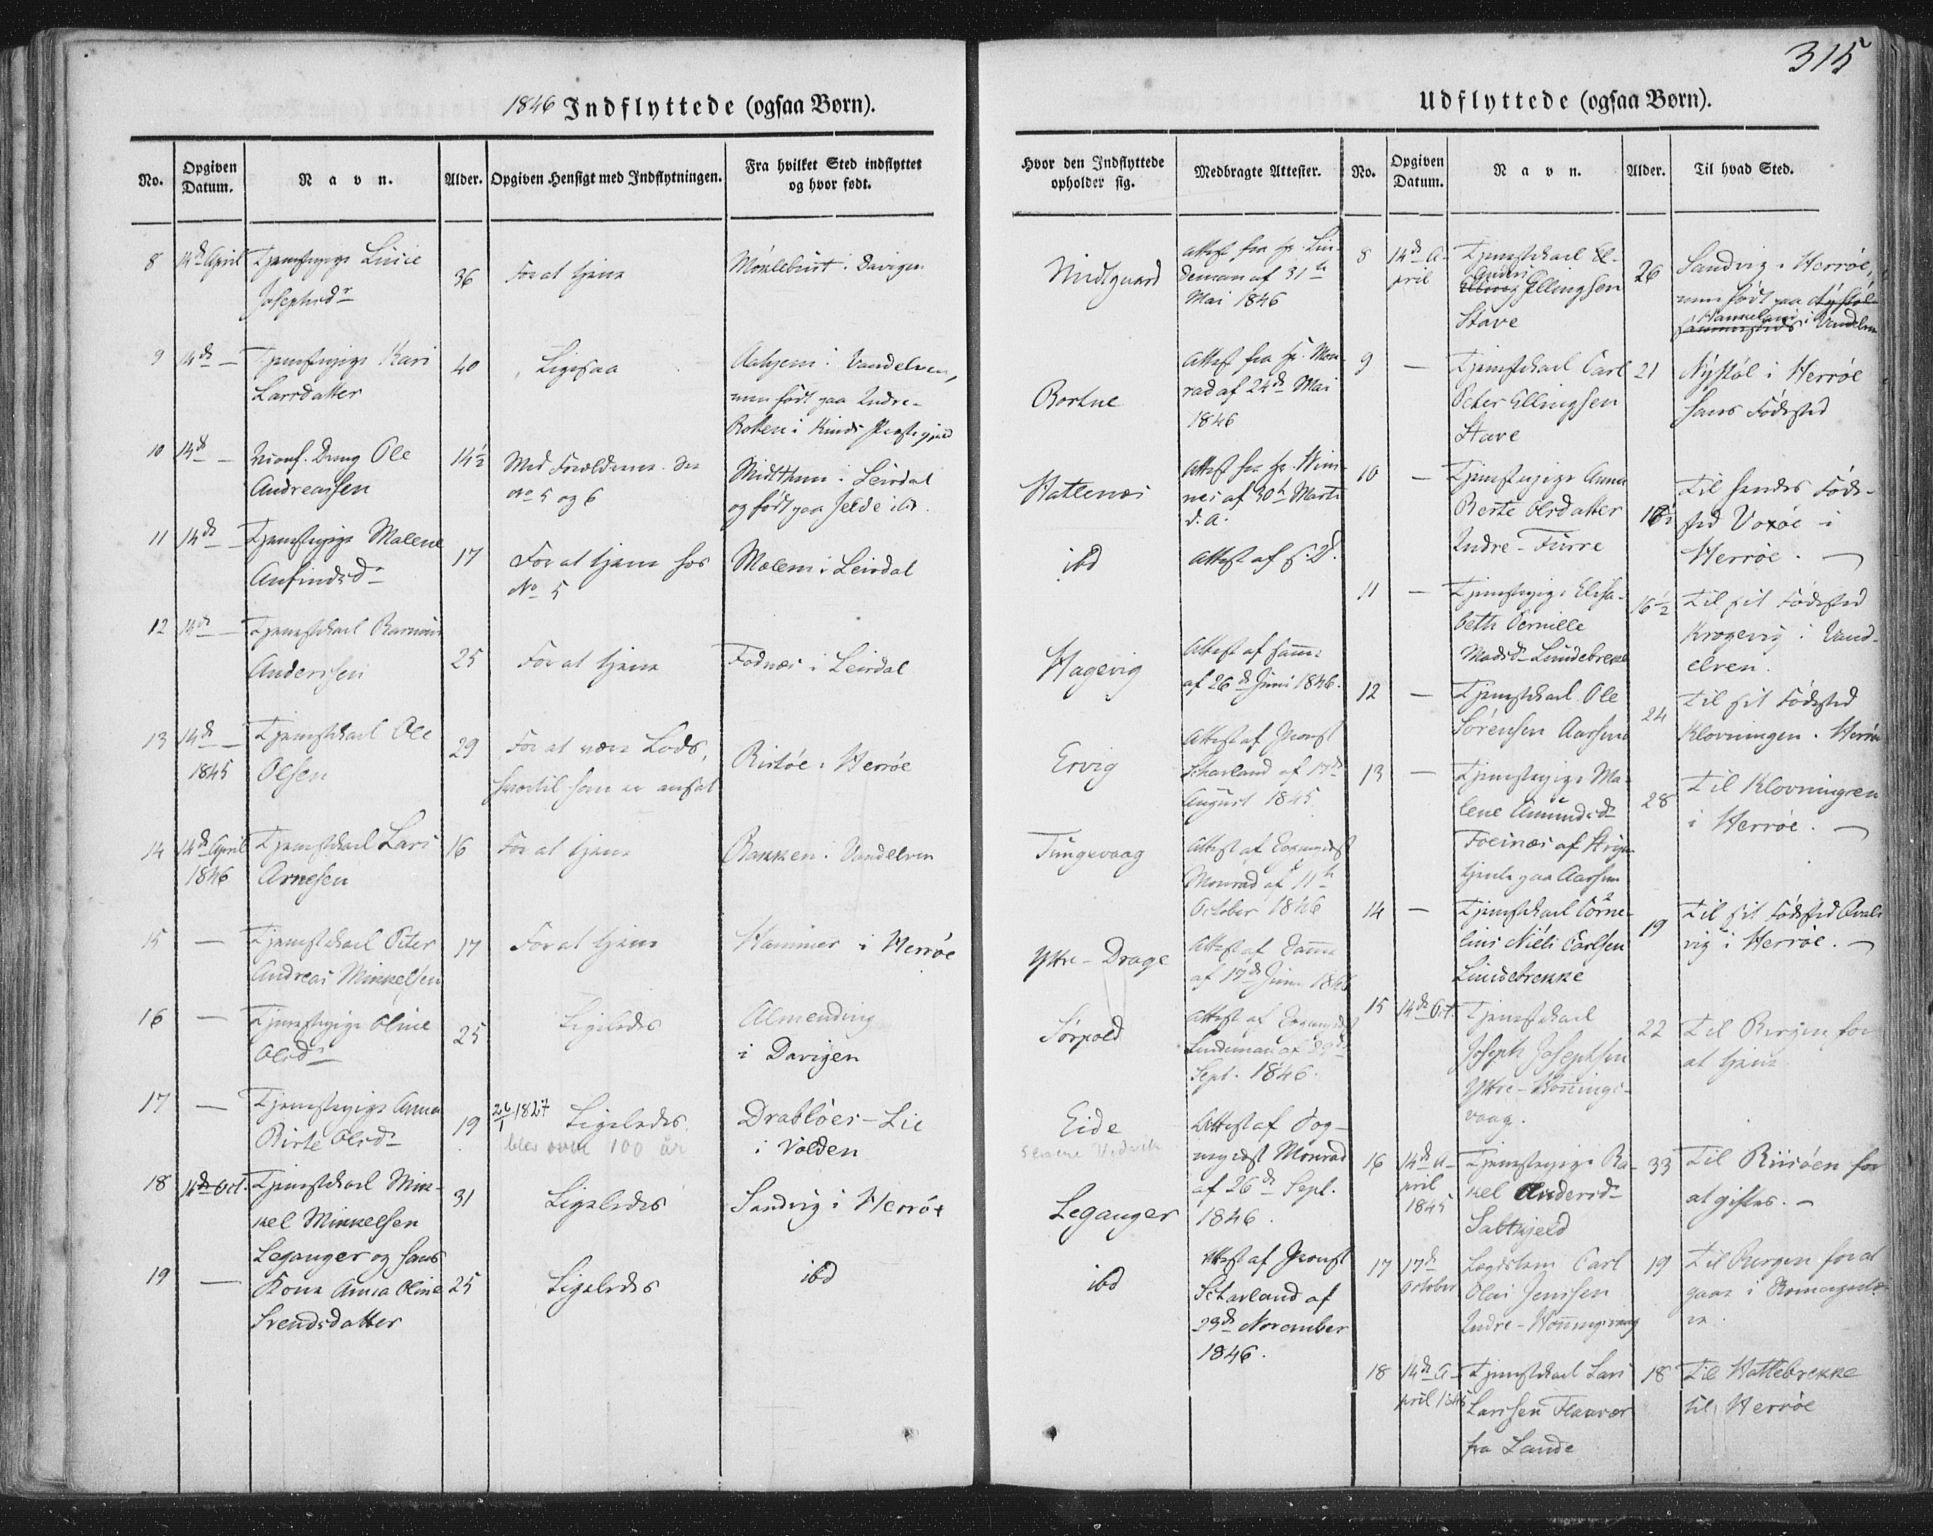 315
1846 Indflyttede (ogsaa Børn).
No.
Opgiven Datum.
Navn.
Alder.
Opgiven Hensigt med Indflytningen.
Fra hvilket Sted indflyttet og hvor født.
Hvor den Indflyttede opholder sig.
Medbragte Attester.
8 14de April Tjenestepige
Josephsdr
36 For at tjene
i Davigen
Midtgaard
Attest fra Hr. Lin-
deman af 31te
Mai 1846
9 14de — Tjenestepige Kari
Larsdatter
40 Ligesaa
i Vandelven,
men født paa Indre-
i Kinds Præstegjeld
Bortne
Attest fra Hr. Mon-
rad af 24de Mai
1846
10 14de — Dreng Ole
Andreassen
14½ Med Forældrene. See
No 5 og 6
i Leirdal
og født paa ibd.
Hatlenæs
Attest fra Hr.
af 30te Marts
d. A.
11 14de — Tjenestepige Malene
Anfindsdr
17 For at tjene hos
No 5
i Leirdal
ibd
Attest af s. D.
12 14de — Tjenestekarl Rasmus
Anderssen
25 For at tjene
Fodnæs i Leirdal
Hagevig
Attest af samme
af 26de Juni 1846.
13 14de — Tjenestekarl Ole
1845 Olsen
29 For at være Lods,
hvortil han er ansat
Risløe i Herrøe
Ervig
Attest af Provst
af 17de
August 1845.
14 14de April Tjenestekarl Lars
1846 Arnesen
16 For at tjene
Bakken i Vandelven
Tungevaag
Attest af Sognepræst
Monrad af 11te
October 1846
15 — Tjenestekarl Peter
Andreas Mikkelsen
17 For at tjene
Hammer i Herrøe
Yttre-Drage
Attest af Samme
af 17de Juni 1846
16 — Tjenestepige Oline
Olsdr
25 Ligeledes
Almending
i Davigen
Sørpold
Attest af Sognepræst
Lindeman af
Sept. 1846.
17 — Tjenestepige Anna
Birte Olsdr
19 26/1 1827 Ligeledes.
blev over 100 år
Drabløes-Lie
i Volden
Eide
senere Vedvik
Attest af Sog-
nepræst Monrad
af 26de Sept.
1846.
18 14de Oct. Tjenestekarl Mik-
kel Mikkelsen
Leganger og hans
31 Ligeledes
Sandvig i Herrøe
Leganger
19 — Kone Anna Oline
Svendsdatter
25 Ligeledes
ibd
ibd
Attest af Provst
af
29de November
1846.
Udflyttede (ogsaa Børn).
No.
Opgiven Datum.
Navn.
Alder.
Til hvad Sted.
8 14de A-
pril
Tjenestekarl El-
Anders
Elling Ellingsen
Stave
26 Sandvig i Herrøe,
men født paa Nystøl
i Vandelven
9 — Tjenestekarl Carl
Peter Ellingsen
Stave
21 Nystøl i Herrøe
hans Fødested
10 — Tjenestepige Anna
Berte Olsdatter
Indre-Furre
Til hendes Føde-
sted Voxøe i
Herrøe. —
11 — Tjenestepige Elisa-
beth Pernille
Madsdr Lundebrekke
16½ Til sit Fødested
Krogevig i Vand-
elven.
12 — Tjenestekarl Ole
Sørensen Aarsem
24 Til sit Fødested
Klovningen i Herrøe
13 — Tjenestepige Ma-
lene Amundsdr
af
tjente paa Aarsem
28 Til Klovningen
i Herrøe. —
14 — Tjenestekarl Corne-
lius Niels Carlsen
Lundebrekke
19 Til sit Fødested Kval-
vig i Herrøe. —
15 14de Oct. Tjenestekarl
Joseph Josephsen
Yttre-Honnings-
vaag.
22 Til Bergen for
at tjene
16 14de A-
pril
1845
Tjenestepige Ra-
kel Andersdr
Saltkjeld
33 Til Riisøen for
at giftes. —
17 17de
October
Lægdslem Carl
Olai Jenssen
Indre-Honningsvaag
19 Til Bergen for at
gaae i
18 14de A-
pril 1846
Tjenestekarl Lars
Larssen Flaavær
fra Sande
18 Til Hattebrekke
til Herrøe